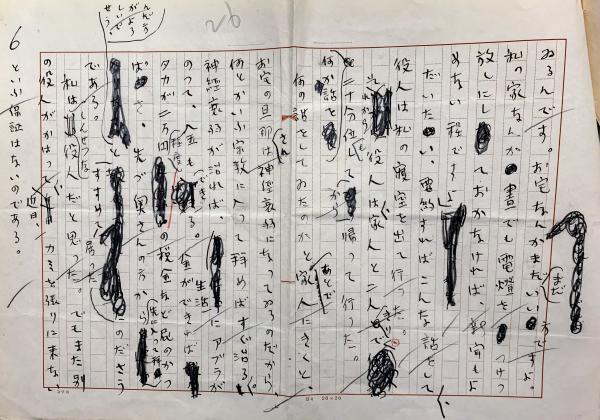 26
ゐるんです。お宅なんかまだいい方ですよ。
私の家なんか晝でも電燈をつけつ
放しにしておかなければ新聞もよ
めない程ですよ
だいたい要約すればこんな話をして
役人は私の寝室を出て行った。
役人は家人と二人で
二十分位
帰って行った。
何か話を
何の話をしてゐたのかと家人にきくと、
あとで
お宅の旦那さんは神経衰弱になってゐるのだから、
何とかいふ宗教に入って拝めばすぐ治る。
神経衰弱が治れば、生活にアブラが
のって、金も出来る。金ができれば
タカが二万円程度の税金など屁のかつ
ぱさ、先づ奥さんの方から
先に入って拝
んだ方がよろしいでせう
とすすめて帰ったのださう
である。
私はしんせつな役人だと思った。でもまた別
の役人がかはって近日、カミを張りに来ない
といふ保証はないのである。
6
B4 20×20